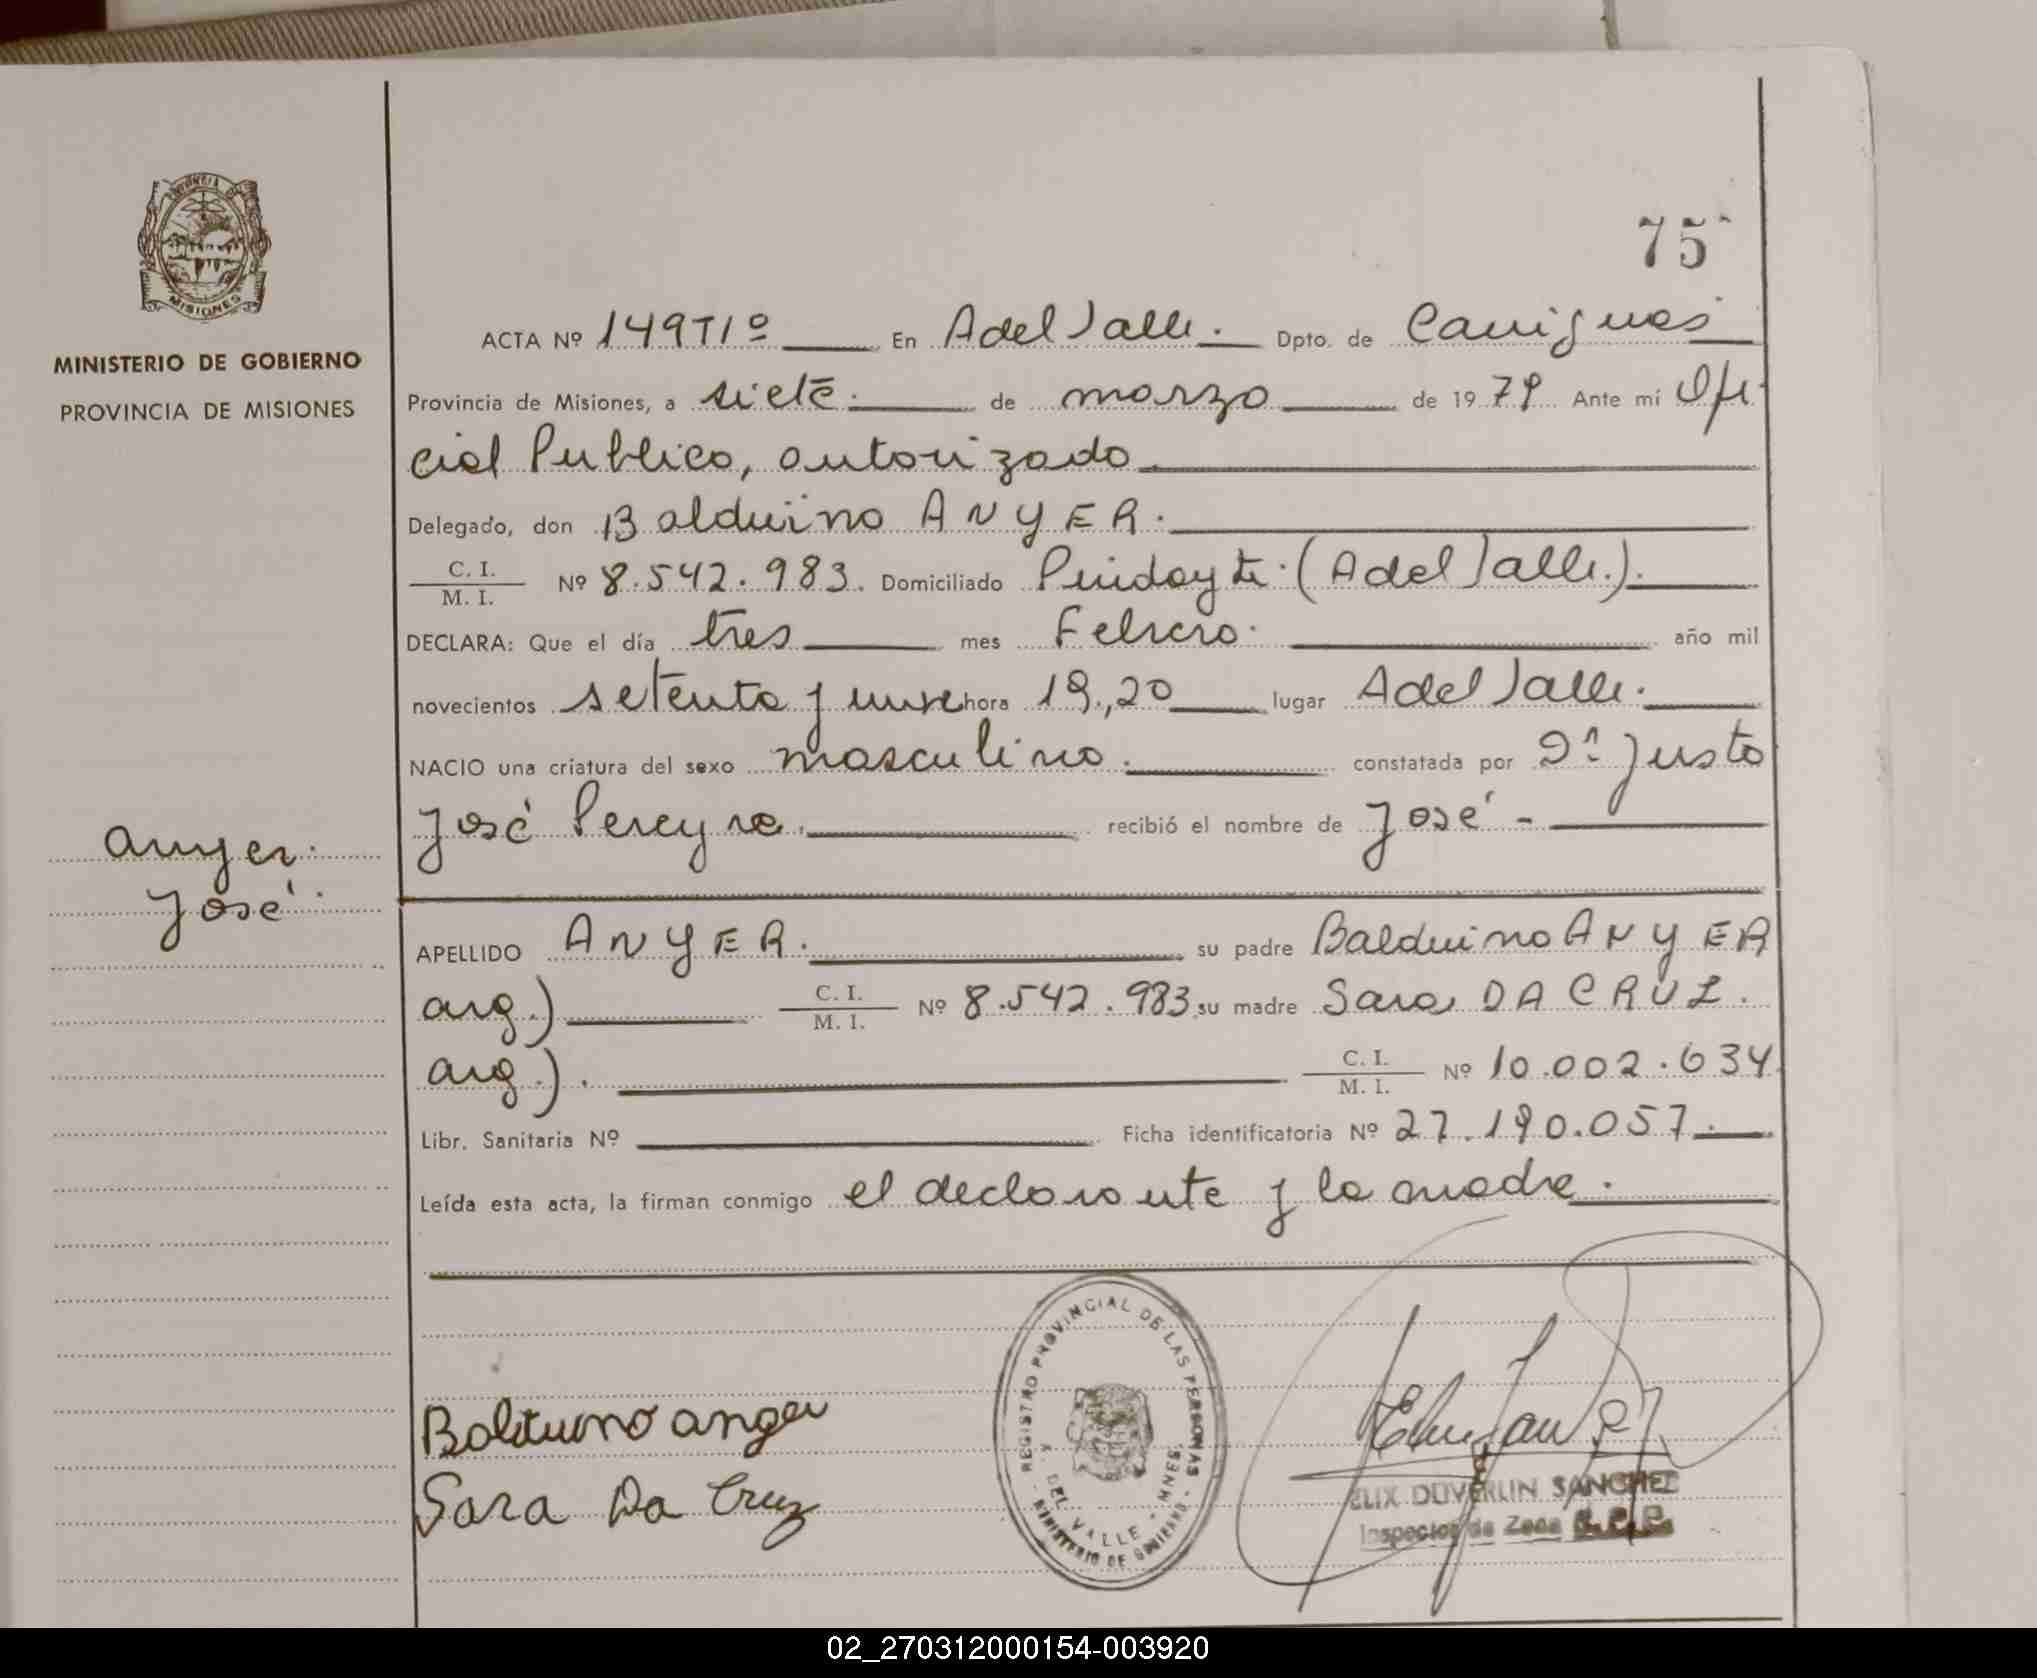 75
ACTA Nº 149TIº En Adel Valle. Dpto. de Cainguas
Provincia de Misiones, a siete. de marzo de 1979. Ante mí Ofi
cial Publico, autorizado
Delegado, don Balduino ANYER.
C. I. / M. I. Nº 8.542.983. Domiciliado Pindayti (Adel Valle.).
DECLARA: Que el día tres mes Febrero. año mil
novecientos setenta y nueve hora 19,20 lugar Adel Valle.
NACIO una criatura del sexo masculino. constatada por Dº Justo
José Pereyra. recibió el nombre de José -
APELLIDO ANYER. su padre Balduino ANYER
arg.) C. I. / M. I. Nº 8.542.983 su madre Sara DA CRUZ.
arg.). C. I. / M. I. Nº 10.002.634
Libr. Sanitaria Nº Ficha identificatoria Nº 27.190.057.
Leída esta acta, la firman conmigo el declarante y la madre.
PROVINCIA DE
MISIONES
MINISTERIO DE GOBIERNO
PROVINCIA DE MISIONES
Anyer.
José.
Balduino anger
Sara Da Cruz
REGISTRO PROVINCIAL DE LAS PERSONAS
DEL VALLE - MNES.
MINISTERIO DE GOBIERNO
ELIX DUVERLIN SANCHEZ
Inspector de Zona
02_270312000154-003920